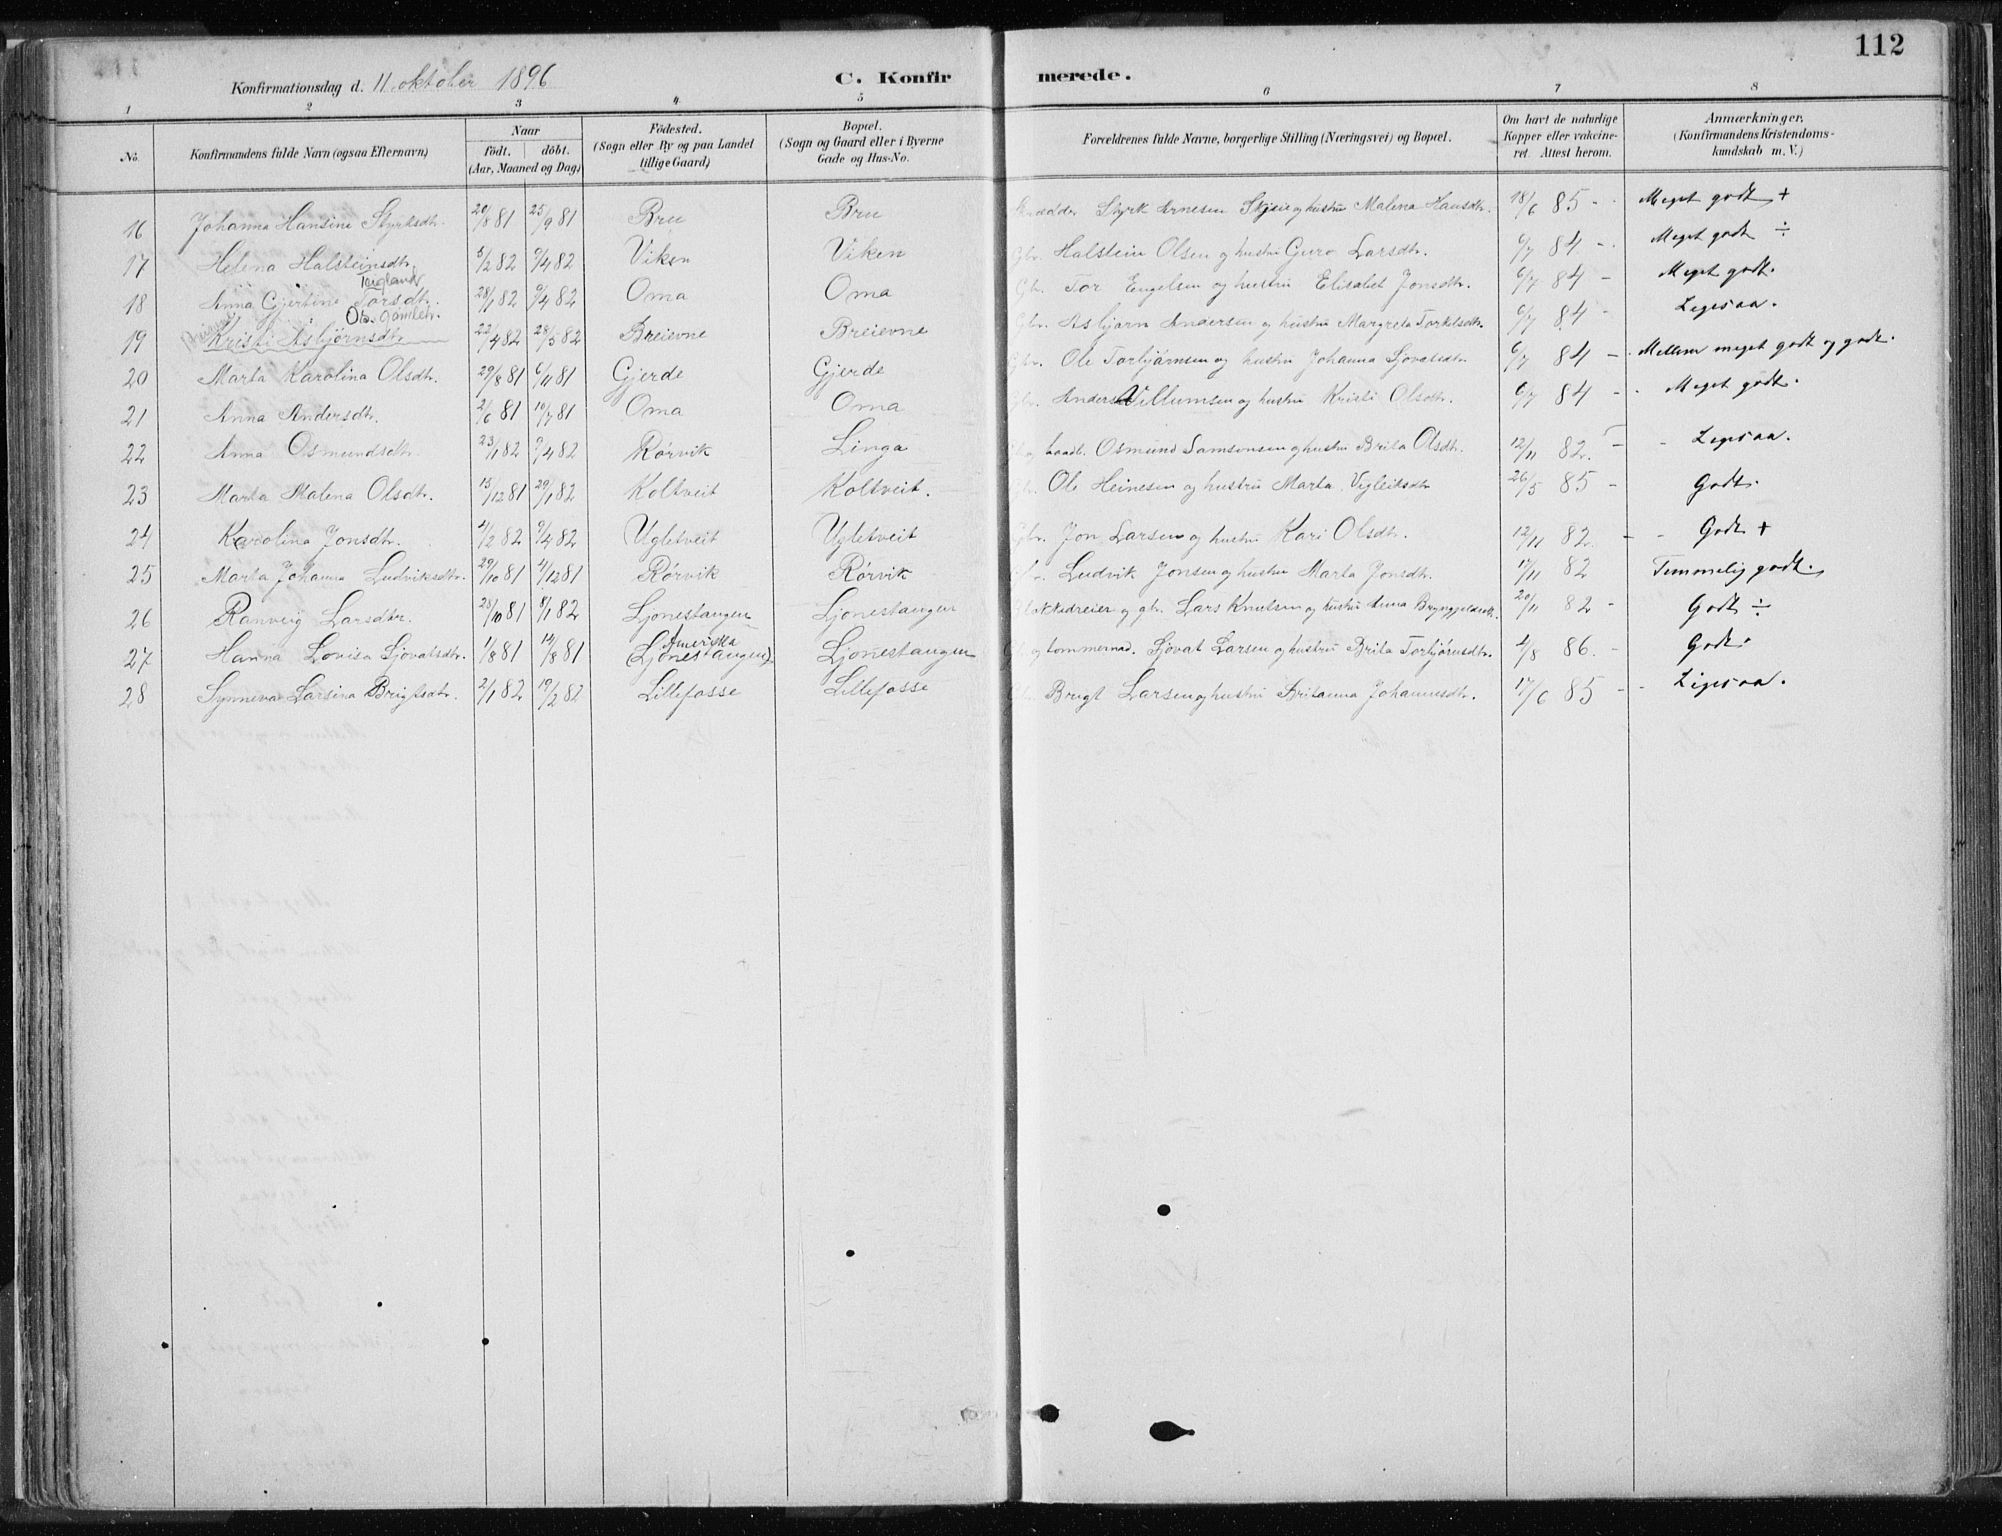 112
Konfirmationsdag d. 11. oktober 1896
C. Konfirmerede.
1 2 3 4 5 6 7 8
No. Konfirmandens fulde Navn (ogsaa Efternavn) Naar födt. döbt. (Aar, Maaned og Dag) Födested. (Sogn eller By og paa Landet tillige Gaard) Bopæl. (Sogn og Gaard eller i Byerne Gade og Hus-No. Forældrenes fulde Navne, borgerlige Stilling (Næringsvei) og Bopæl. Om havt de naturlige Kopper eller vakcineret. Attest herom. Anmærkninger. (Konfirmandens Kristendomskundskab m. V.)
16 Johanna Hansine Styrksdtr. 20/8 81 25/9 81 Bru Bru Styrk Arnesen Skjeie og hustru Malena Hansdtr. 18/6 85 - Meget godt +
17 Helena Halsteinsdtr. 5/2 82 9/4 82 Viken Viken Gbr. Halstein Olsen og hustru Guro Larsdtr. 6/7 84 - Meget godt ÷
Teigland
18 Anna Gjertine Torsdtr. 28/1 82 9/4 82 Oma Oma Gbr. Tor Engelsen og hustru Elisabet Jonsdtr. 6/7 84 - Meget godt.
19 Kristi Asbjørnsdtr. 22/4 82 28/5 82 Breievne Breievne Gbr. Asbjørn Andersen og hustru Margreta Torkelsdtr. 6/7 84 - Ligesaa.
20 Marta Karolina Olsdtr. 29/8 81 6/11 81 Gjerde Gjerde Gbr. Ole Torbjørnsen og hustru Johanna Sjovatsdtr 6/7 84 - Mellem meget godt og godt.
21 Anna Andersdtr. 2/6 81 10/7 81 Oma Oma Gbr. Anders Villumsen og hustru Kristi Olsdtr. 6/7 84 - Meget godt.
22 Anna Osmundsdtr. 23/1 82 9/4 82 Rørvik Linga Osmund Samsonsen og hustru Brita Olsdtr. 12/11 82. - Ligesaa.
23 Marta Malena Olsdtr. 15/12 81 29/1 82 Koltveit Koltveit. Gbr. Ole Heinesen og hustru Marta Vigleiksdtr 26/5 85 - Godt.
24 Karolina Jonsdtr. 4/2 82 9/4 82 Ugletveit Ugletveit Gbr. Jon Larsen og hustru Kari Olsdtr. 12/11 82. - Godt +
25 Marta Johanna Ludviksdtr. 29/10 81 4/12 81 Rørvik Rørvik Gbr. Ludvik Jonsen og hustru Marta Jonsdtr. 17/11 82 Temmelig godt.
26 Ranveig Larsdtr. 28/10 81 8/1 82 Ljonestangen Ljonestangen Blokkedreier og gbr. Lars Knutsen og hustru Anna Bryngjeldsdtr. 20/11 82 - Godt ÷
Amerika
27 Hanna Lovisa Sjovatsdtr. 1/8 81 14/8 81 (Ljonestangen) Ljonestangen Gbr. og tømmermd. Sjovat Larsen og hustru Brita Torbjørnsdtr. 4/8 86. - Godt.
28 Synneva Larsina Brigtsdtr. 2/1 82 19/2 82 Lillefosse Lillefosse Gbr. Brigt Larsen og hustru Britanna Johannesdtr. 17/6 85 - Ligesaa.